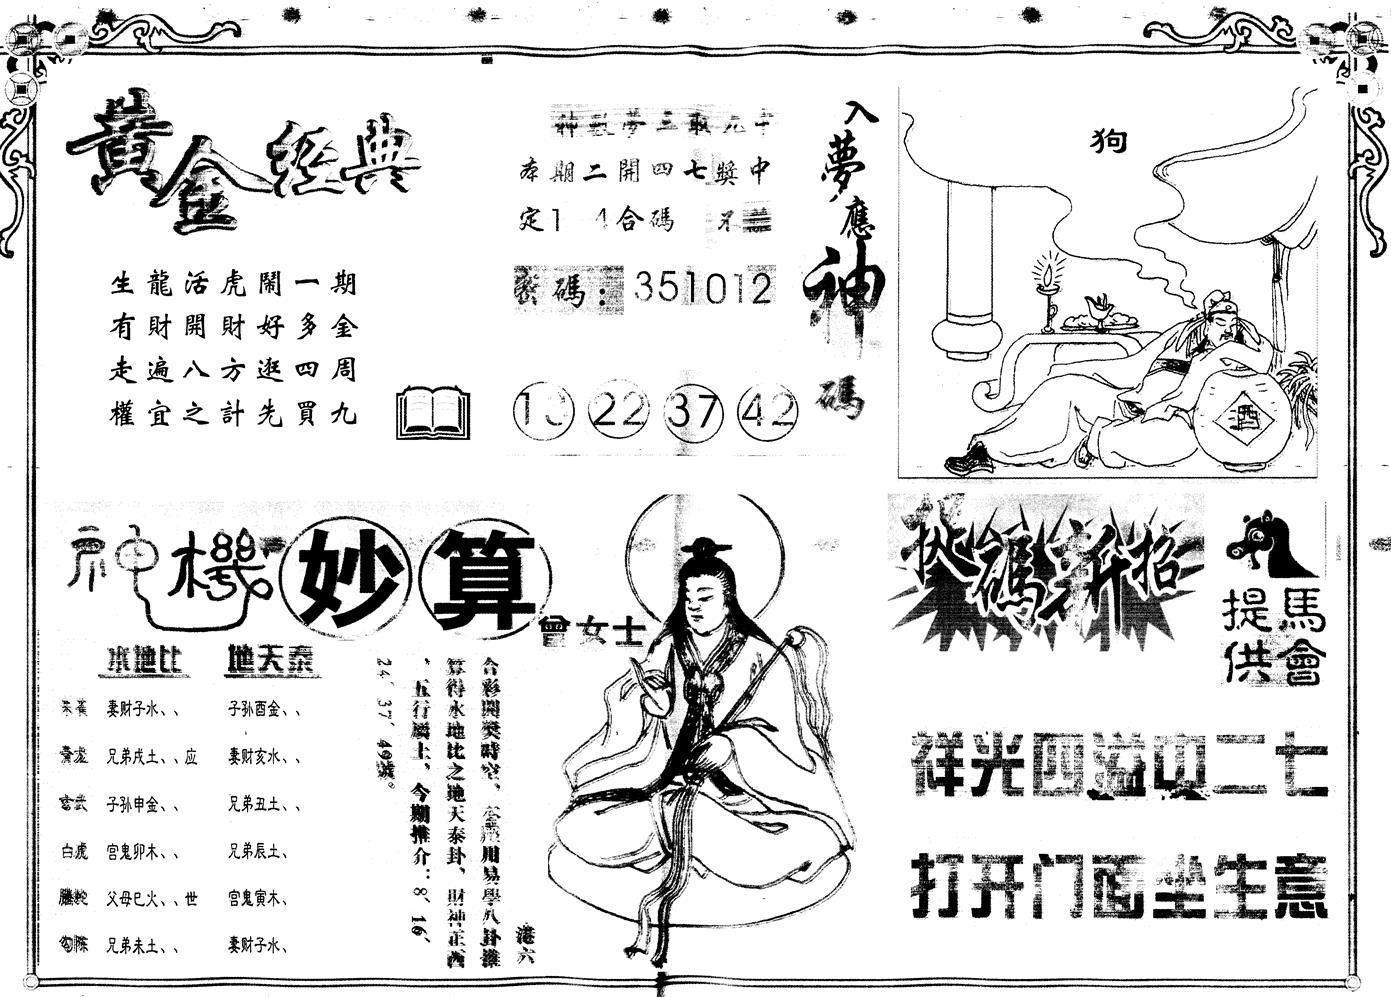 黃金經典
生龍活虎鬧一期
有財開財好多金
走遍八方逛四周
權宜之計先買九
本期二開四七獎中
定1 4合碼
密碼：351012
22 37 42
入夢應神碼
狗
酒
神機妙算
曾女士
水地比 地天泰
朱雀 妻财子水、、 子孙酉金、、
青龙 兄弟戌土、、应 妻财亥水、、
玄武 子孙申金、、 兄弟丑土、、
白虎 宫鬼卯木、、 兄弟辰土、
騰蛇 父母巳火、、世 宫鬼寅木、
勾陈 兄弟未土、、 妻财子水、
港六
合彩開獎時空，用易學八卦推
算得水地比之地天泰卦、財神正西
、五行屬土，今期推介：8、16、
24、37、49號。
碼新招
馬會
提供
祥光四溢中二七
打开门面坐生意